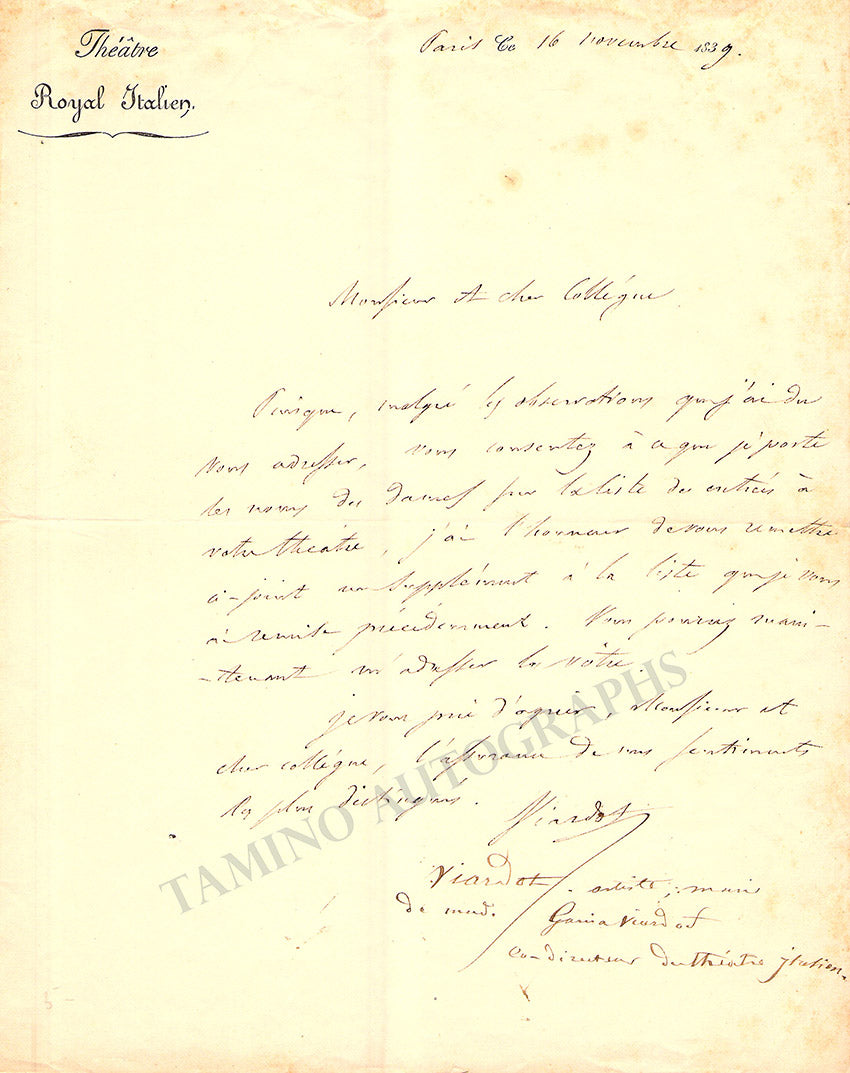 Théâtre
Royal Italien.
Paris Ce 16 novembre 1839.
Monsieur et cher Collégue
Puisque, malgré les observations que j'ai du
vous adresser, vous consentez à ce que je porte
les noms des dames sur la liste des entrées à
votre théâtre, j'ai l'honneur de vous remettre
ci-joint un supplément à la liste que je vous
ai remise précédemment. Vous pourrez main-
-tenant m'adresser la vôtre.
je vous prie d'agréer, Monsieur et
cher collégue, l'assurance de mes sentiments
les plus distingués.
Viardot
Viardot. artiste, mari
de mad. Garcia Viardot
co-directeur du théâtre italien.
TAMINO AUTOGRAPHS